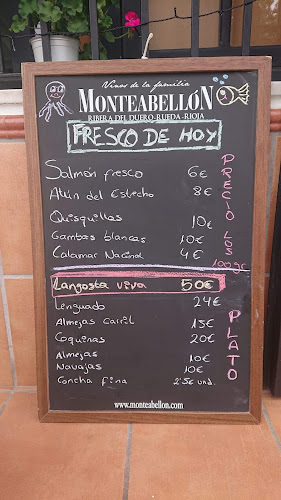 Vinos de la familia
MONTEABELLÓN
RIBERA DEL DUERO-RUEDA-RIOJA
FRESCO DE HOY
Salmón fresco 6€
Atún del Estrecho 8€
Quisquillas 10€
Gambas blancas 10€
Calamar Nacional 4€
PRECIO LOS 100gr
Langosta viva 50€
Lenguado 24€
Almejas Carril 15€
Coquinas 20€
Almejas 10€
Navajas 10€
Concha fina 2'5€ und.
PLATO
www.monteabellon.com